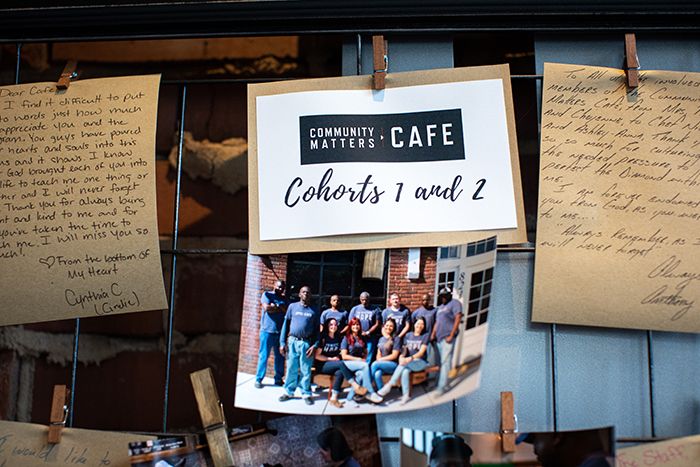 Dear Cafe
I find it difficult to put
to words just how much
appreciate you and the
gram. You guys have poured
r hearts and souls into this
and it shows. I know
God brought each of you into
life to teach me one thing or
ther and I will never forget
Thank you for always being
nt and kind to me and for
you've taken the time to
ch me. I will miss you so
♡ From the bottom of
My Heart
Cynthia C
(Cindie)
COMMUNITY
MATTERS CAFE
Cohorts 1 and 2
To All of involved
members of the Community
Matters Cafe, from
and Cheyenne, to Chef
and Ashley Thank
so much for
the needed pressure to
the Diamond
me.
I am forever
you from God, as you
to me...
Always Remember, as
will never forget
Always
Anthony
I would like to
Staff